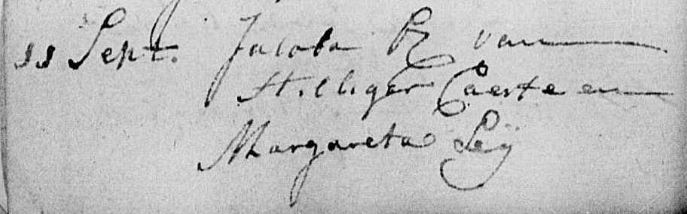 11 Sept. Jacoba R van
Hilliger Caerte en
Margareta Leÿ